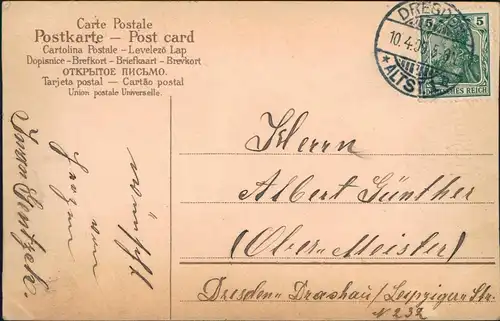 Carte Postale
Postkarte — Post card
Cartolina Postale – Levelező Lap
Dopisnice - Brefkort - Briefkaart - Brevkort
ОТКРЫТОЕ ПИСЬМО.
Tarjeta postal – Cartão postal
Union postale Universelle.
DRESDEN
10.4.09
* ALTST.
5 5
DEUTSCHES REICH
Herrn
Albert Günther
(Ober-Meister)
Dresden-Drachau/Leipziger-Str.
N 232
wünscht